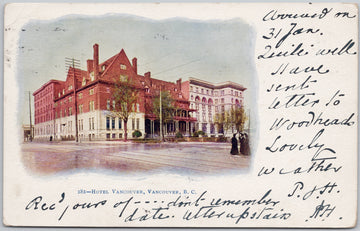 Arrived on
31 Jan.
Quite well
Have
sent
letter to
Woodheads
Lovely
weather
282—HOTEL VANCOUVER, VANCOUVER, B. C.
Rec'd yours of ---- don't remember
date. letter upstairs